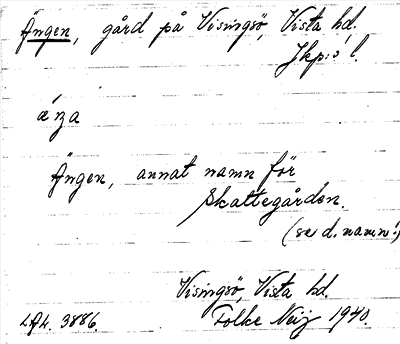 Ängen, gård på Visingsö, Vista hd.
Jkp:s l.
ǽŋa
Ängen, annat namn för
Skattegården.
(se d. namn!)
Visingsö, Vista hd.
L.A.L. 3886. Folke Neij 1940.